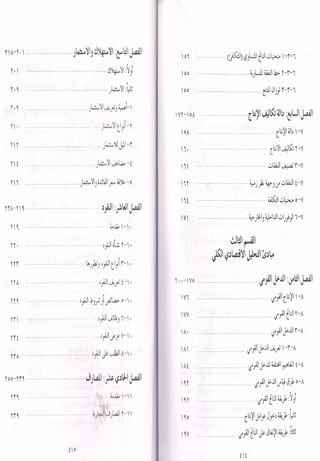 ٦-٣-١ منحنيات الناتج المتساوي (المتكافئ) ١٥٢
٦-٣-٢ خط النفقة المتساوية ١٥٥
٦-٣-٣ توازن المنتج ١٥٥
الفصل السابع: دالة تكاليف الإنتاج ١٥٨-١٧٢
٧-١ دالة الإنتاج ١٥٨
٧-٢ تكاليف الانتاج ١٦٠
٧-٣ تصنيف النفقات ١٦١
٧-٤ النفقات من وجهة نظر زمنية ١٦٢
٧-٥ منحنيات التكلفة ١٦٤
٧-٦ الوفورات الداخلية والخارجية ١٧١
القسم الثالث
مبادئ التحليل الاقتصادي الكلي
الفصل الثامن: الدخل القومي ١٧٥-٢٠٠
٨-١ الإنتاج القومي ١٧٦
٨-٢ الناتج القومي ١٧٧
٨-٣ الدخل القومي ١٨٠
٨-٣-١ تعريف الدخل القومي ١٨١
٨-٤ المفاهيم المختلفة للدخل القومي ١٨٤
٨-٥ طرق قياس الدخل القومي ١٩٢
أولاً: طريقة الناتج القومي ١٩٢
ثانياً: طريقة دخول عوامل الإنتاج ١٩٥
ثالثاً: طريقة الإنفاق على الناتج القومي ١٩٧
٤١٤
الفصل التاسع: الاستهلاك والاستثمار ٢٠١-٢١٨
أولاً: الاستهلاك ٢٠١
ثانياً: الاستثمار ٢٠٩
١- أهمية وتعريف الاستثمار ٢٠٩
٢- أنواع الاستثمار ٢١٠
٣- الميل للاستثمار ٢١٢
٤- مضاعف الاستثمار ٢١٤
٥- علاقة سعر الفائدة والاستثمار ٢١٦
الفصل العاشر: النقود ٢١٩-٢٣٨
١٠-١ مقدمة ٢١٩
١٠-٢ نشأة النقود ٢٢٠
١٠-٣ أنواع النقود وتطورها ٢٢٣
١٠-٤ تعريف النقود ٢٢٨
١٠-٥ خصائص أو شروط النقود ٢٢٩
١٠-٦ وظائف النقود ٢٣١
١٠-٧ عرض النقد ٢٣٤
١٠-٨ الطلب على النقود ٢٣٥
الفصل الحادي عشر: المصارف ٢٣٩-٢٥٥
١١-١ مقدمة ٢٣٩
١١-٢ المصارف التجارية ٢٣٩
٤١٥